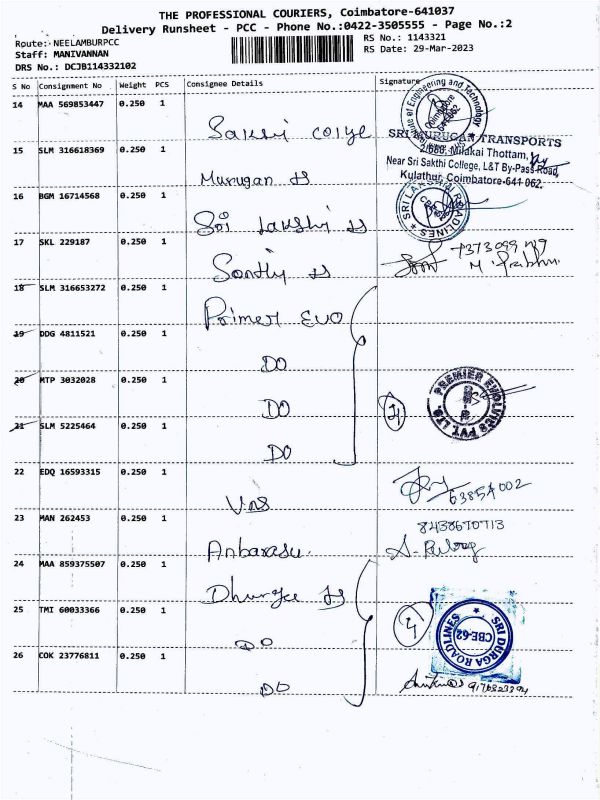 THE PROFESSIONAL COURIERS, Coimbatore-641037
Delivery Runsheet - PCC - Phone No.:0422-3505555 - Page No.:2
Route: NEELAMBURPCC
RS No.: 1143321
Staff: MANIVANNAN
RS Date: 29-Mar-2023
DRS No.: DCJB114332102
S No Consignment No Weight PCS Consignee Details Signature
14 MAA 569853447 0.250 1
of Engineering and Technology
Coimbatore
641062
Sakthi colge
SRI MURUGAN TRANSPORTS
15 SLM 316618369 0.250 1
2/686, Milakai Thottam,
Near Sri Sakthi College, L&T By-Pass Road,
Murugan
Kulathur, Coimbatore-641 062.
16 BGM 16714568 0.250 1
SRI LAKSHMI ROADLINES
Sri Lakshi
17 SKL 229187 0.250 1
M. Prabhu
18 SLM 316653272 0.250 1
Primer Evo
19 DDG 4811521 0.250 1
DO
20 MTP 3032028 0.250 1
PREMIER EVOLVICS PVT. LTD.
DO
4
21 SLM 5225464 0.250 1
DO
22 EDQ 16593315 0.250 1
VNS
23 MAN 262453 0.250 1
8438670713
Anbarasu.
24 MAA 859375507 0.250 1
Dhurga
25 TMI 60033366 0.250 1
SRI DURGA ROADLINES
CBE-62
DO
26 COK 23776811 0.250 1
DO